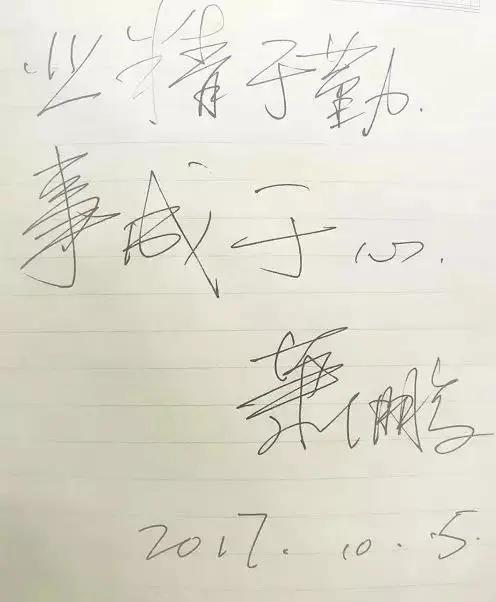 业精于勤.
事成于心.
2017.10.5.